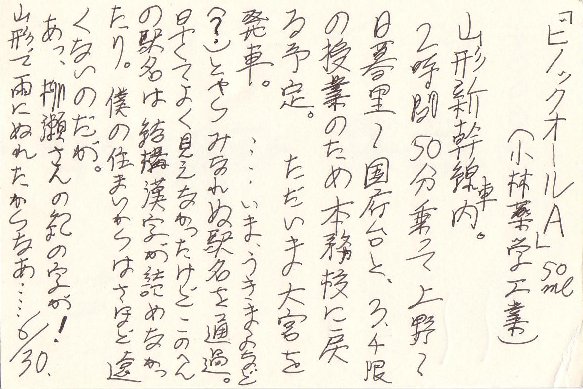 「ピノックオールA」50ml
(小林薬学工業)
山形新幹線車内。
2時間50分乗って上野〜
日暮里〜国府台と、3,4限
の授業のため本務校に戻
る予定。 ただいま大宮を
発車。 ‥‥いま、うきまふなど
(?)とやらみなれぬ駅名を通過。
早くてよく見えなかったけどこのへん
の駅名は結構漢字が読めなかっ
たり。僕の住まいからはさほど遠
くないのだが。
あっ、柳瀬さんの絵の字が!
山形で雨にぬれたからなあ‥‥6/30.